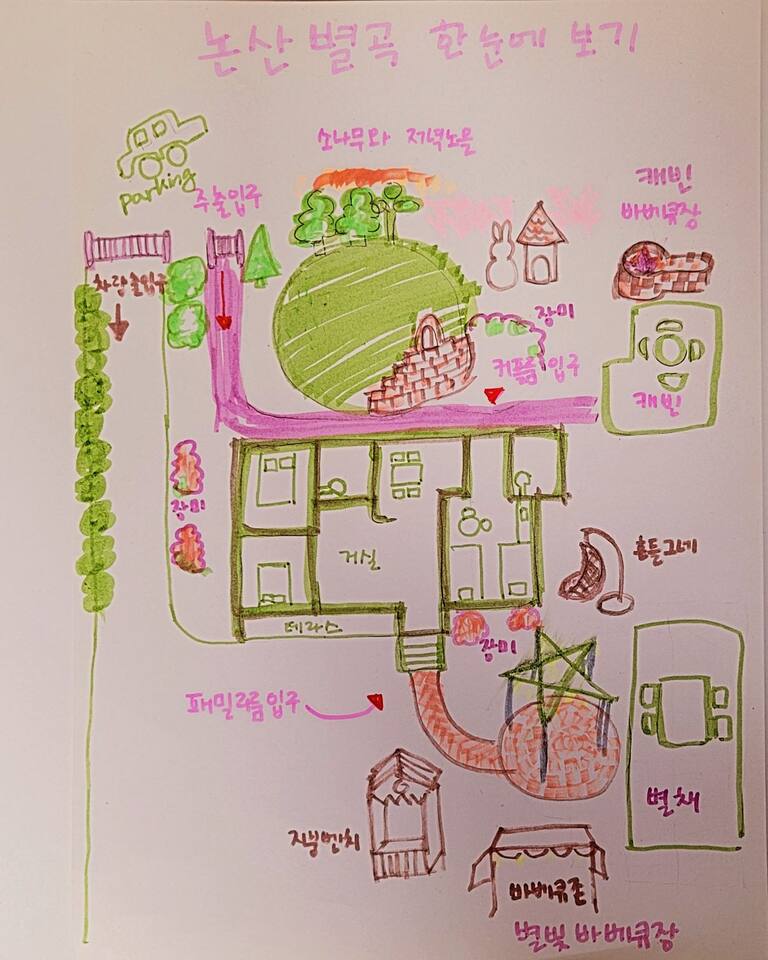 논산별곡 한눈에 보기
소나무와 저녁노을
parking
주출입구
캐빈
바베큐장
차량출입구
장미
커플룸 입구
캐빈
장미
거실
흔들그네
테라스
장미
패밀리룸입구
별채
지붕벤치
바베큐존
별빛 바베큐장